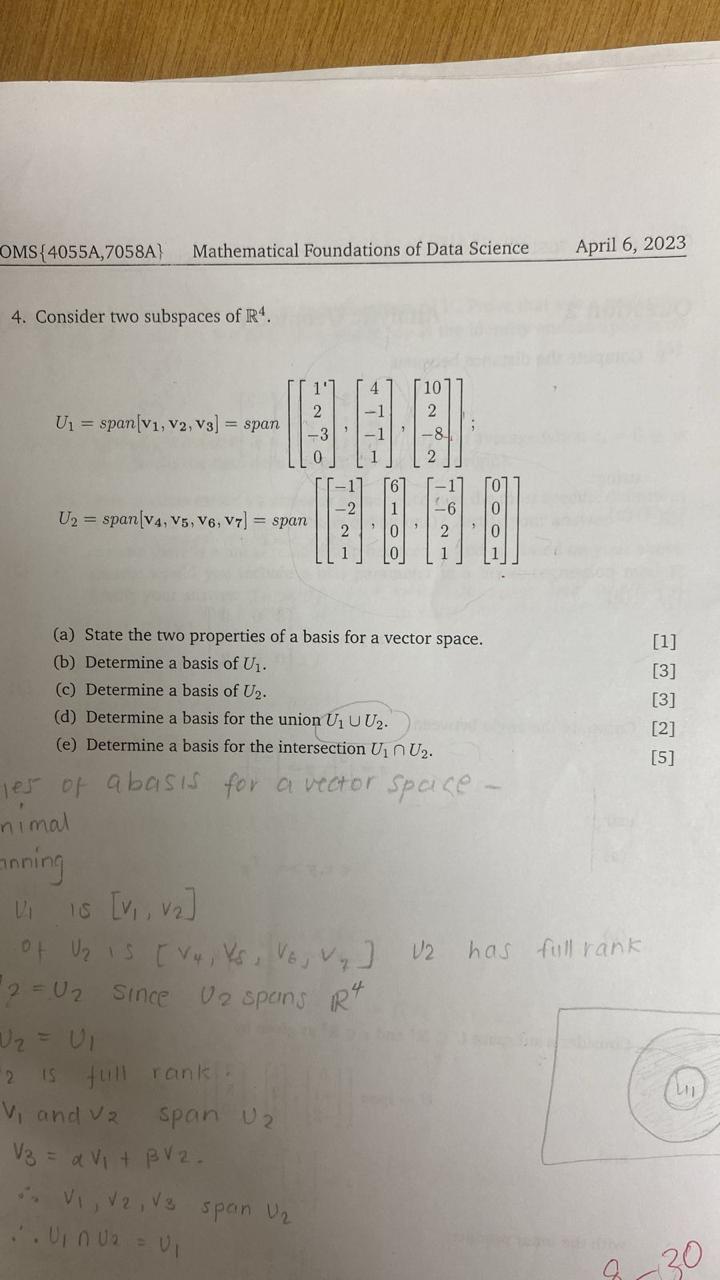 OMS{4055A,7058A} Mathematical Foundations of Data Science April 6, 2023
4. Consider two subspaces of ℝ⁴.
U₁ = span[v₁, v₂, v₃] = span [[1 2 −3 0], [4 −1 −1 1], [10 2 −8 2]];
U₂ = span[v₄, v₅, v₆, v₇] = span [[−1 −2 2 1], [6 1 0 0], [−1 −6 2 1], [0 0 0 1]]
(a) State the two properties of a basis for a vector space. [1]
(b) Determine a basis of U₁. [3]
(c) Determine a basis of U₂. [3]
(d) Determine a basis for the union U₁ ∪ U₂. [2]
(e) Determine a basis for the intersection U₁ ∩ U₂. [5]
ies of a basis for a vector space -
nimal
anning
U₁ is [v₁, v₂]
of U₂ is [v₄, v₅, v₆, v₇] U2 has full rank
2 = U₂ since U2 spans ℝ⁴
U₂ = U₁
2 is full rank.
V₁ and V₂ span U2
V₃ = αV₁ + βV₂.
∴ V₁, V₂, V₃ span U₂
∴ U₁ ∩ U₂ = U₁
U₁
30